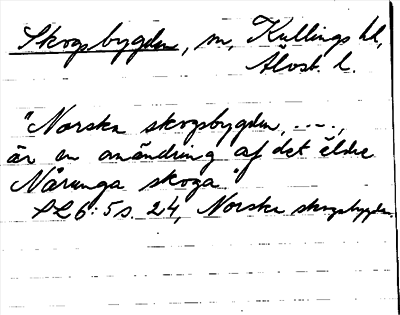 Skogsbygden, sn, Kullings hd,
Älvsb. l.
"Norska skogsbygden, ---,
är en omändring af det äldre
Nårunga skoga"
SL 6:5 s. 24, Norska skogsbygden.